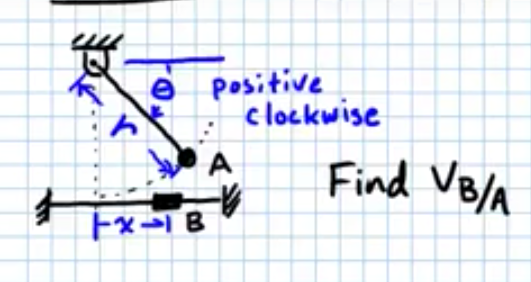 θ positive
clockwise
r
A
Find V_B/A
x B